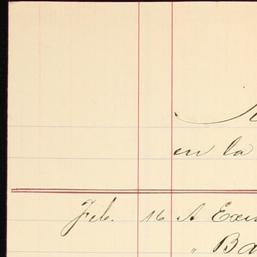 en la
Feb. 16 A
" Ba